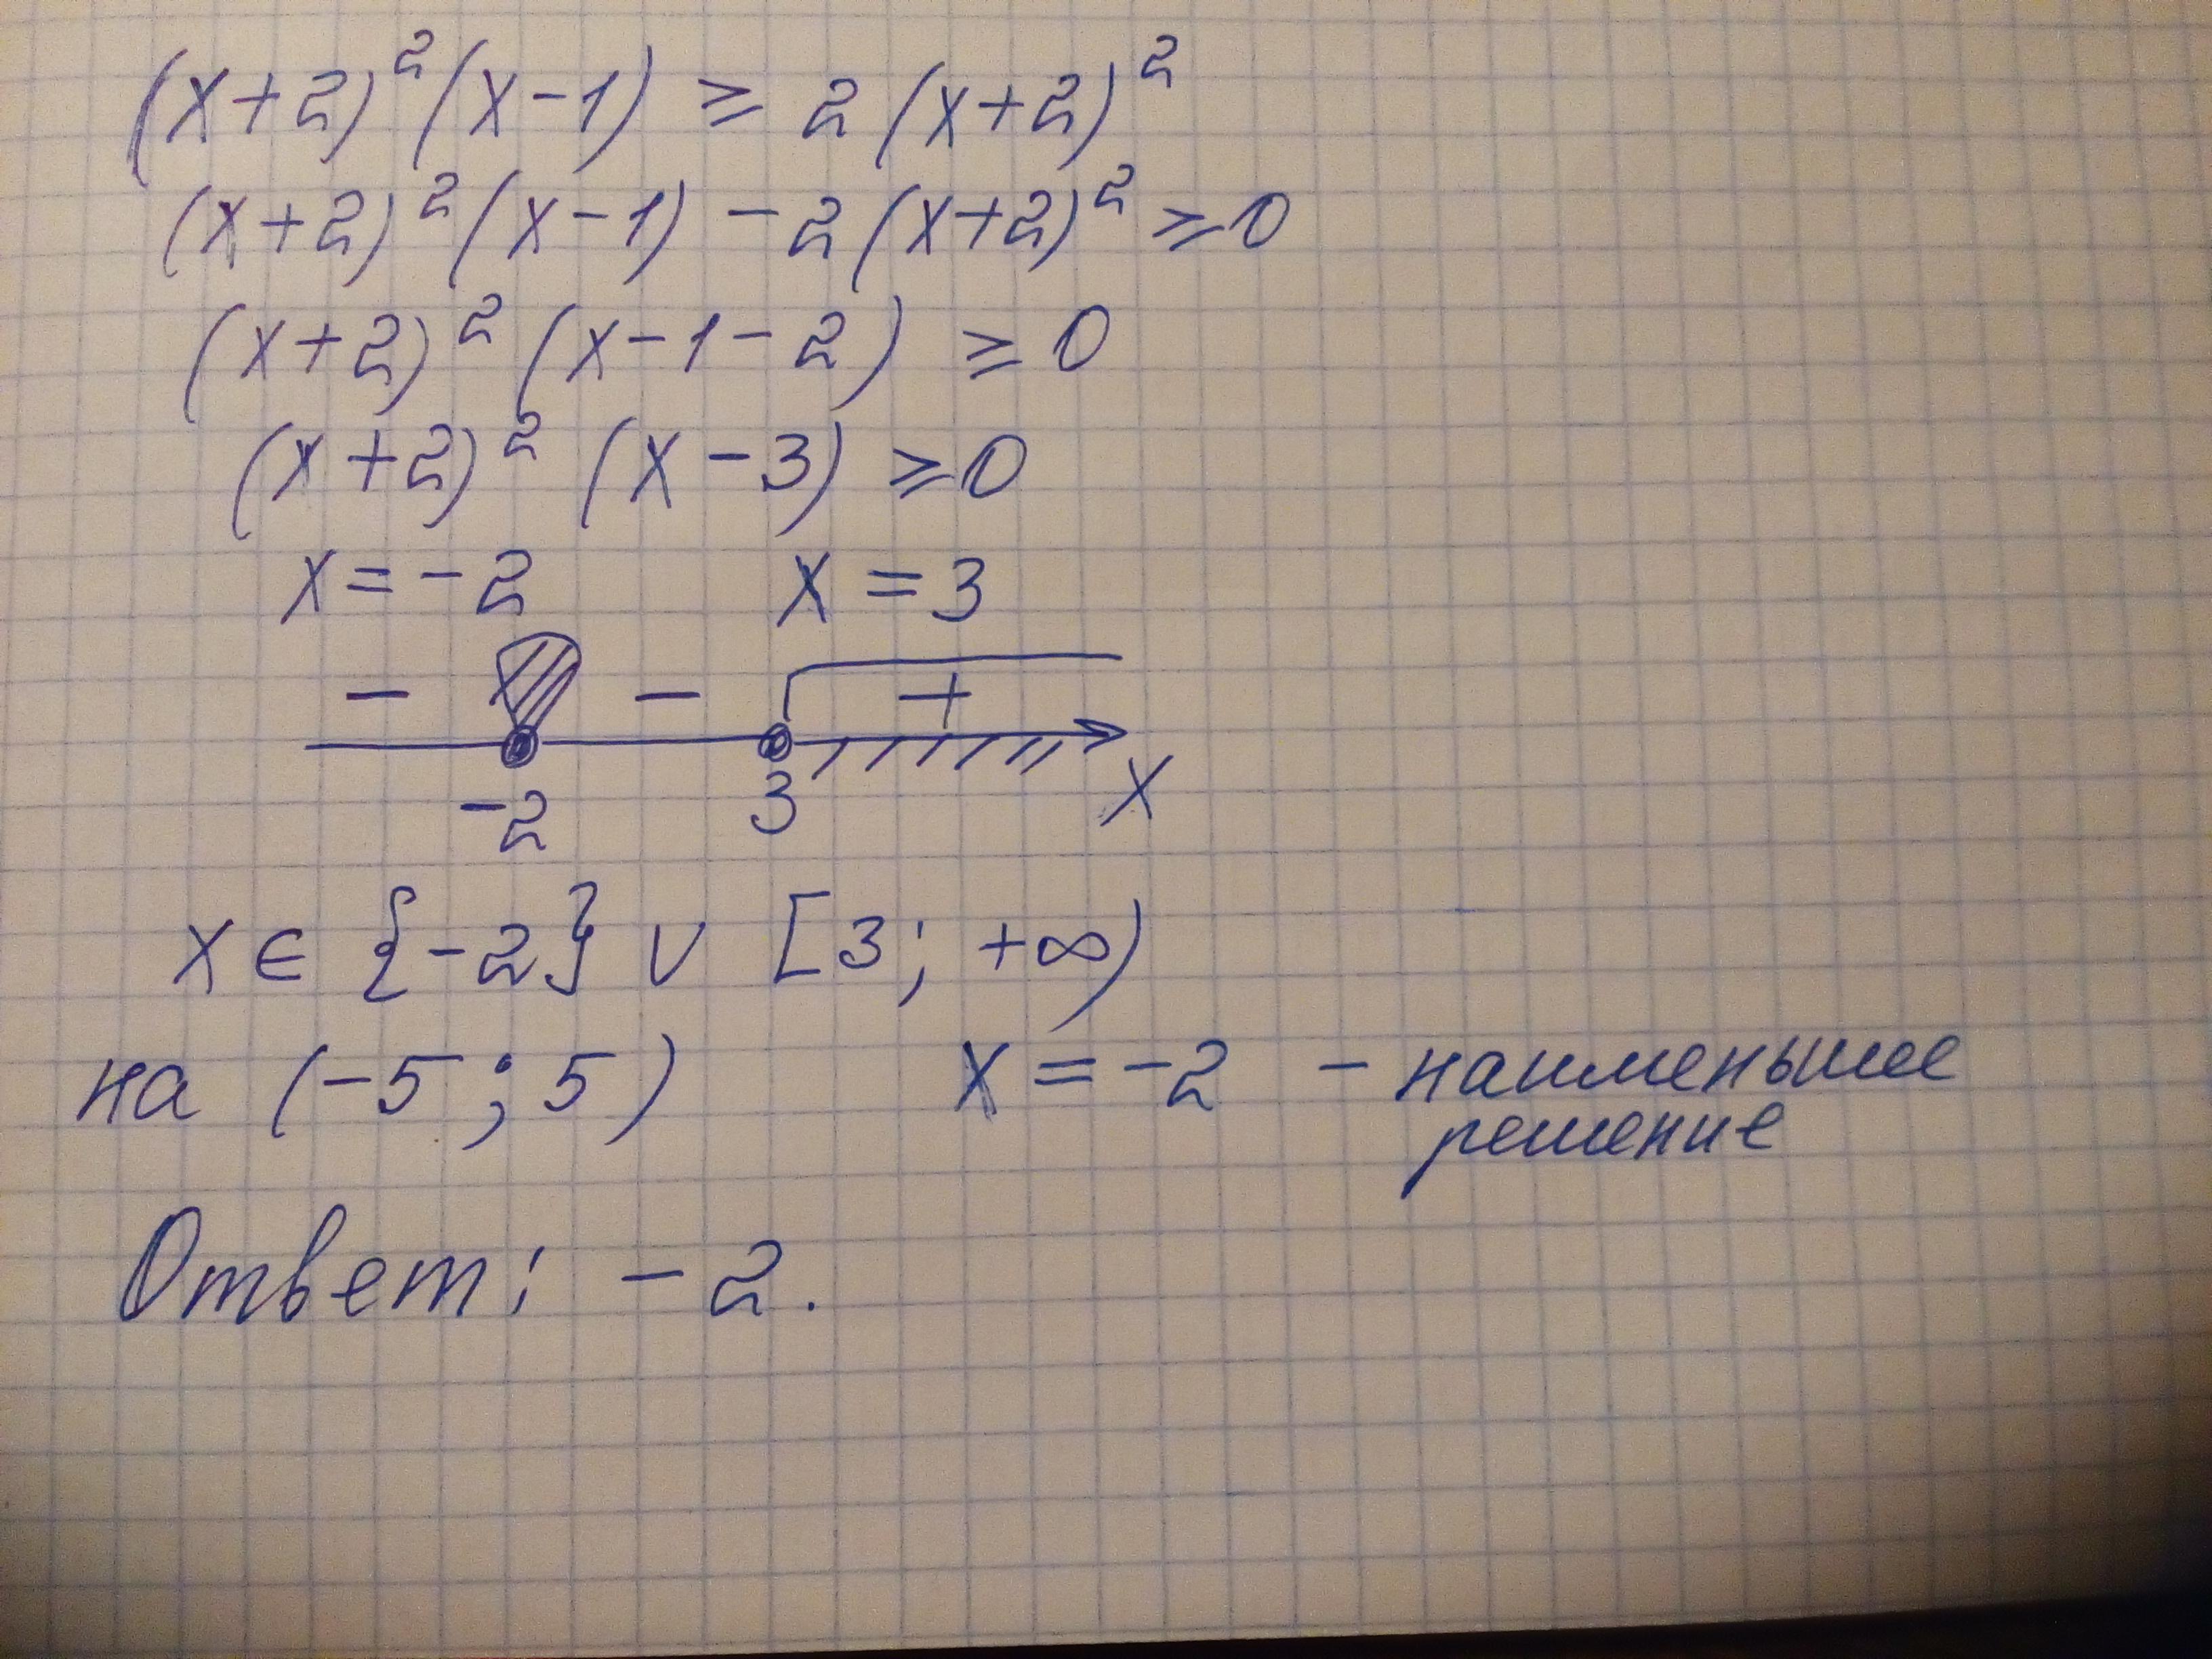 (x+2)²(x-1) ≥ 2(x+2)²
(x+2)²(x-1) - 2(x+2)² ≥ 0
(x+2)²(x-1-2) ≥ 0
(x+2)²(x-3) ≥ 0
x=-2 x=3
- - +
-2 3 x
x ∈ {-2} ∪ [3; +∞)
на (-5; 5) x = -2 - наименьшее
решение
Ответ: -2.